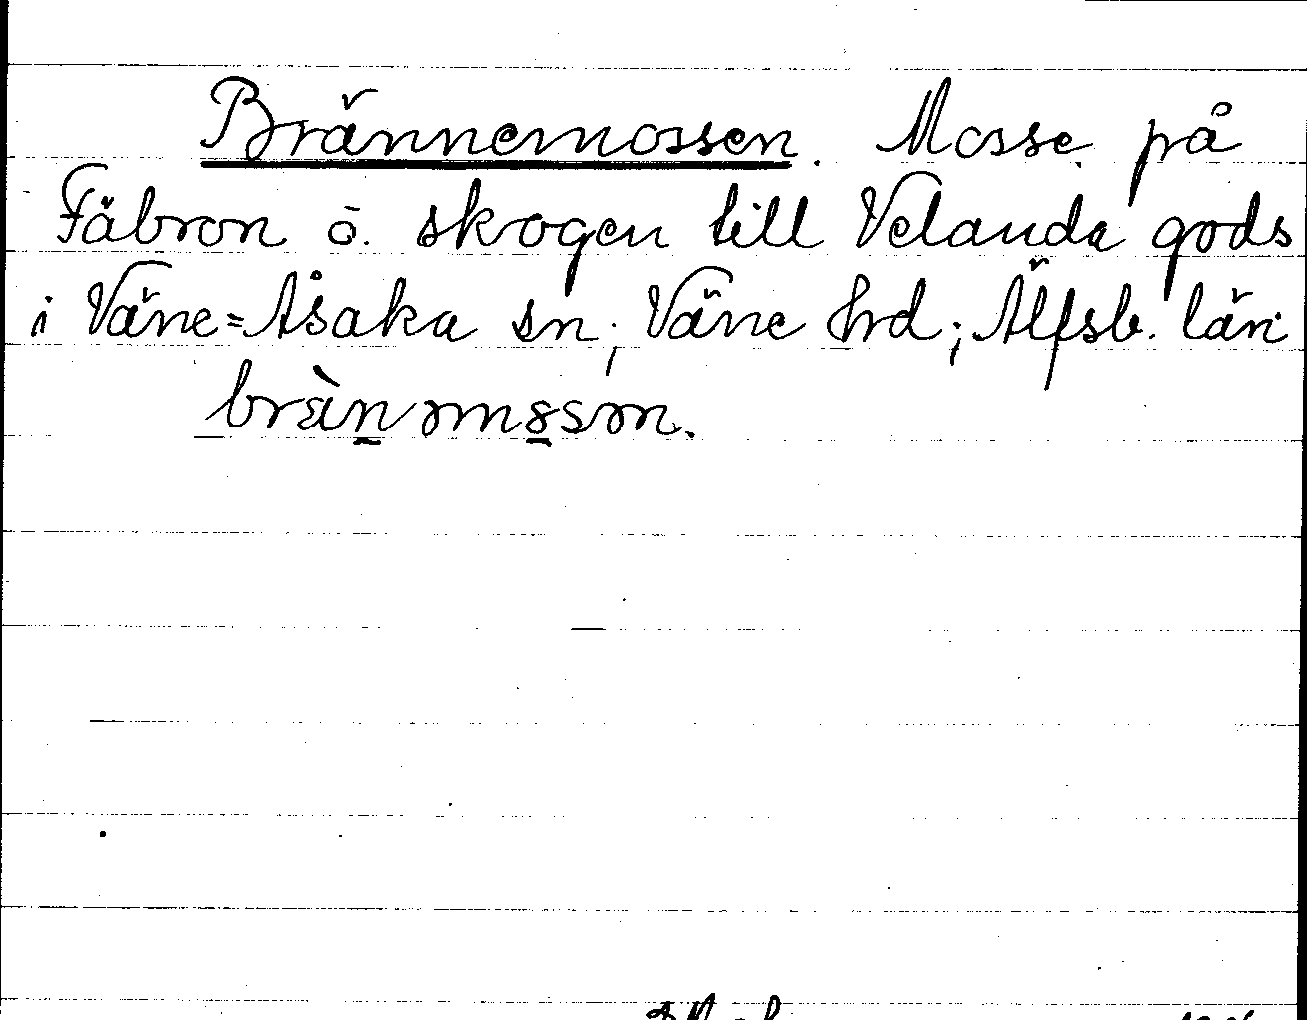 Brännemossen. Mosse på
Fäbron ö. skogen till Velanda gods
i Väne=Åsaka sn, Väne hrd; Älfsb. län